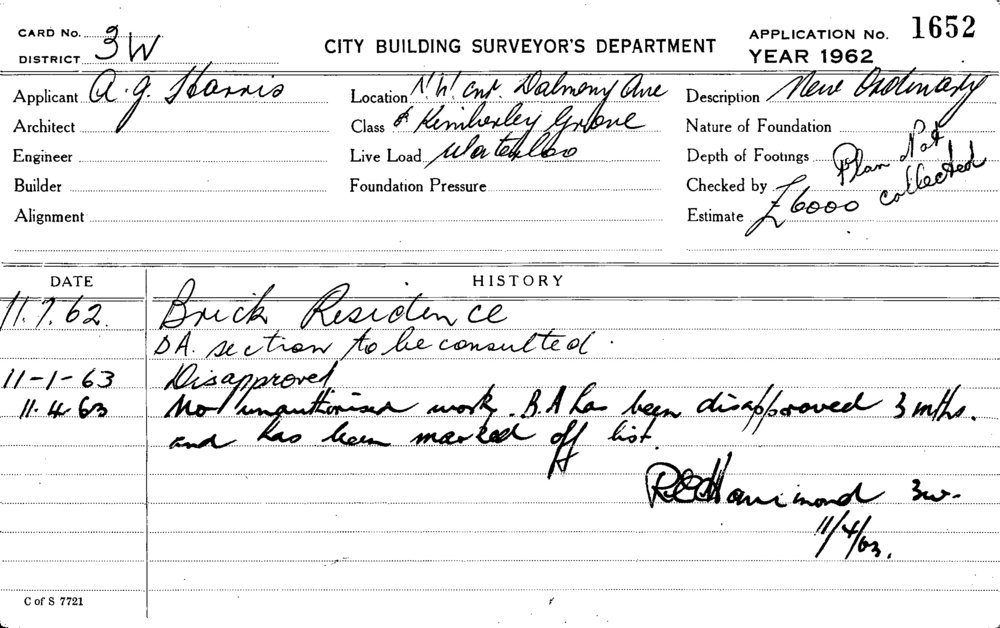 CARD No. 3W
DISTRICT
CITY BUILDING SURVEYOR'S DEPARTMENT
APPLICATION No. 1652
YEAR 1962
Applicant A. G. Harris
Location N.W. cnr. Dalmeny Ave
Description New Ordinary
Architect
Class & Kimberley Grove
Nature of Foundation
Engineer
Live Load Waterloo
Depth of Footings Plan Not
Builder
Foundation Pressure
Checked by collected
Alignment
Estimate £6000
DATE
HISTORY
11.7.62. Brick Residence
D A. section to be consulted.
11-1-63 Disapproved
11.4.63 No unauthorised work. B.A has been disapproved 3 mths.
and has been marked off list.
Hammond 3w.
11/4/63.
C of S 7721